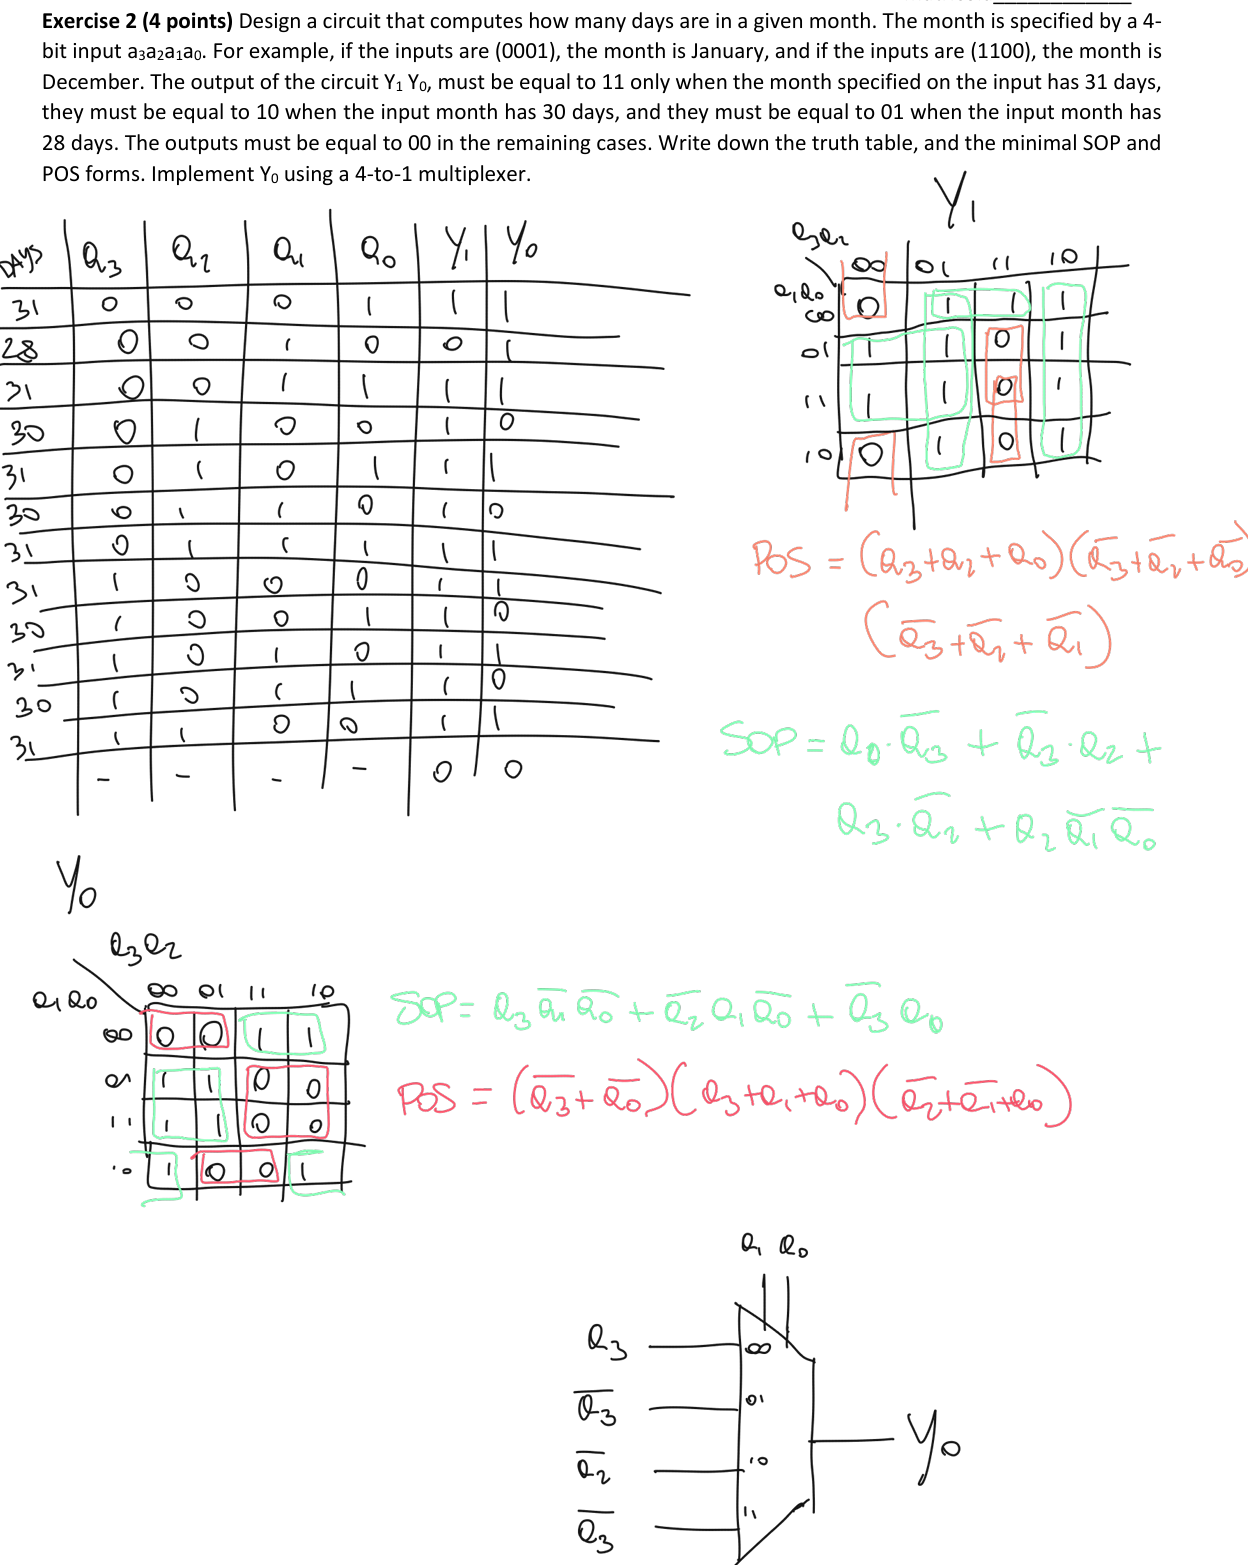 Exercise 2 (4 points) Design a circuit that computes how many days are in a given month. The month is specified by a 4-
bit input a₃a₂a₁a₀. For example, if the inputs are (0001), the month is January, and if the inputs are (1100), the month is
December. The output of the circuit Y₁ Y₀, must be equal to 11 only when the month specified on the input has 31 days,
they must be equal to 10 when the input month has 30 days, and they must be equal to 01 when the input month has
28 days. The outputs must be equal to 00 in the remaining cases. Write down the truth table, and the minimal SOP and
POS forms. Implement Y₀ using a 4-to-1 multiplexer.
DAYS a₃ a₂ a₁ a₀ Y₁ Y₀
31 0 0 0 1 1 1
28 0 0 1 0 0 1
31 0 0 1 1 1 1
30 0 1 0 0 1 0
31 0 1 0 1 1 1
30 0 1 1 0 1 0
31 0 1 1 1 1 1
31 1 0 0 0 1 1
30 1 0 0 1 1 0
31 1 0 1 0 1 1
30 1 0 1 1 1 0
31 1 1 0 0 1 1
- - - - 0 0
Y₁
a₃a₂
00 01 11 10
a₁a₀
00 0 1 1 1
01 1 1 0 1
11 1 1 0 1
10 0 1 0 1
POS = (a₃+a₂+a₀)(a̅₃+a̅₂+a̅₀)
(a̅₃+a̅₂+a̅₁)
SOP = a₀·a̅₃ + a̅₃·a₂ +
a₃·a̅₂ + a₂ a̅₁ a̅₀
Y₀
a₃a₂
a₁a₀ 00 01 11 10
00 0 0 1 1
01 1 1 0 0
11 1 1 0 0
10 1 0 0 1
SOP = a₃ a̅₁ a̅₀ + a̅₂ a₁ a̅₀ + a̅₃ a₀
POS = (a̅₃+a̅₀)(a₃+a₁+a₀)(a̅₂+a̅₁+a₀)
a₁ a₀
a₃ 00
a̅₃ 01
Y₀
a̅₂ 10
a̅₃ 11